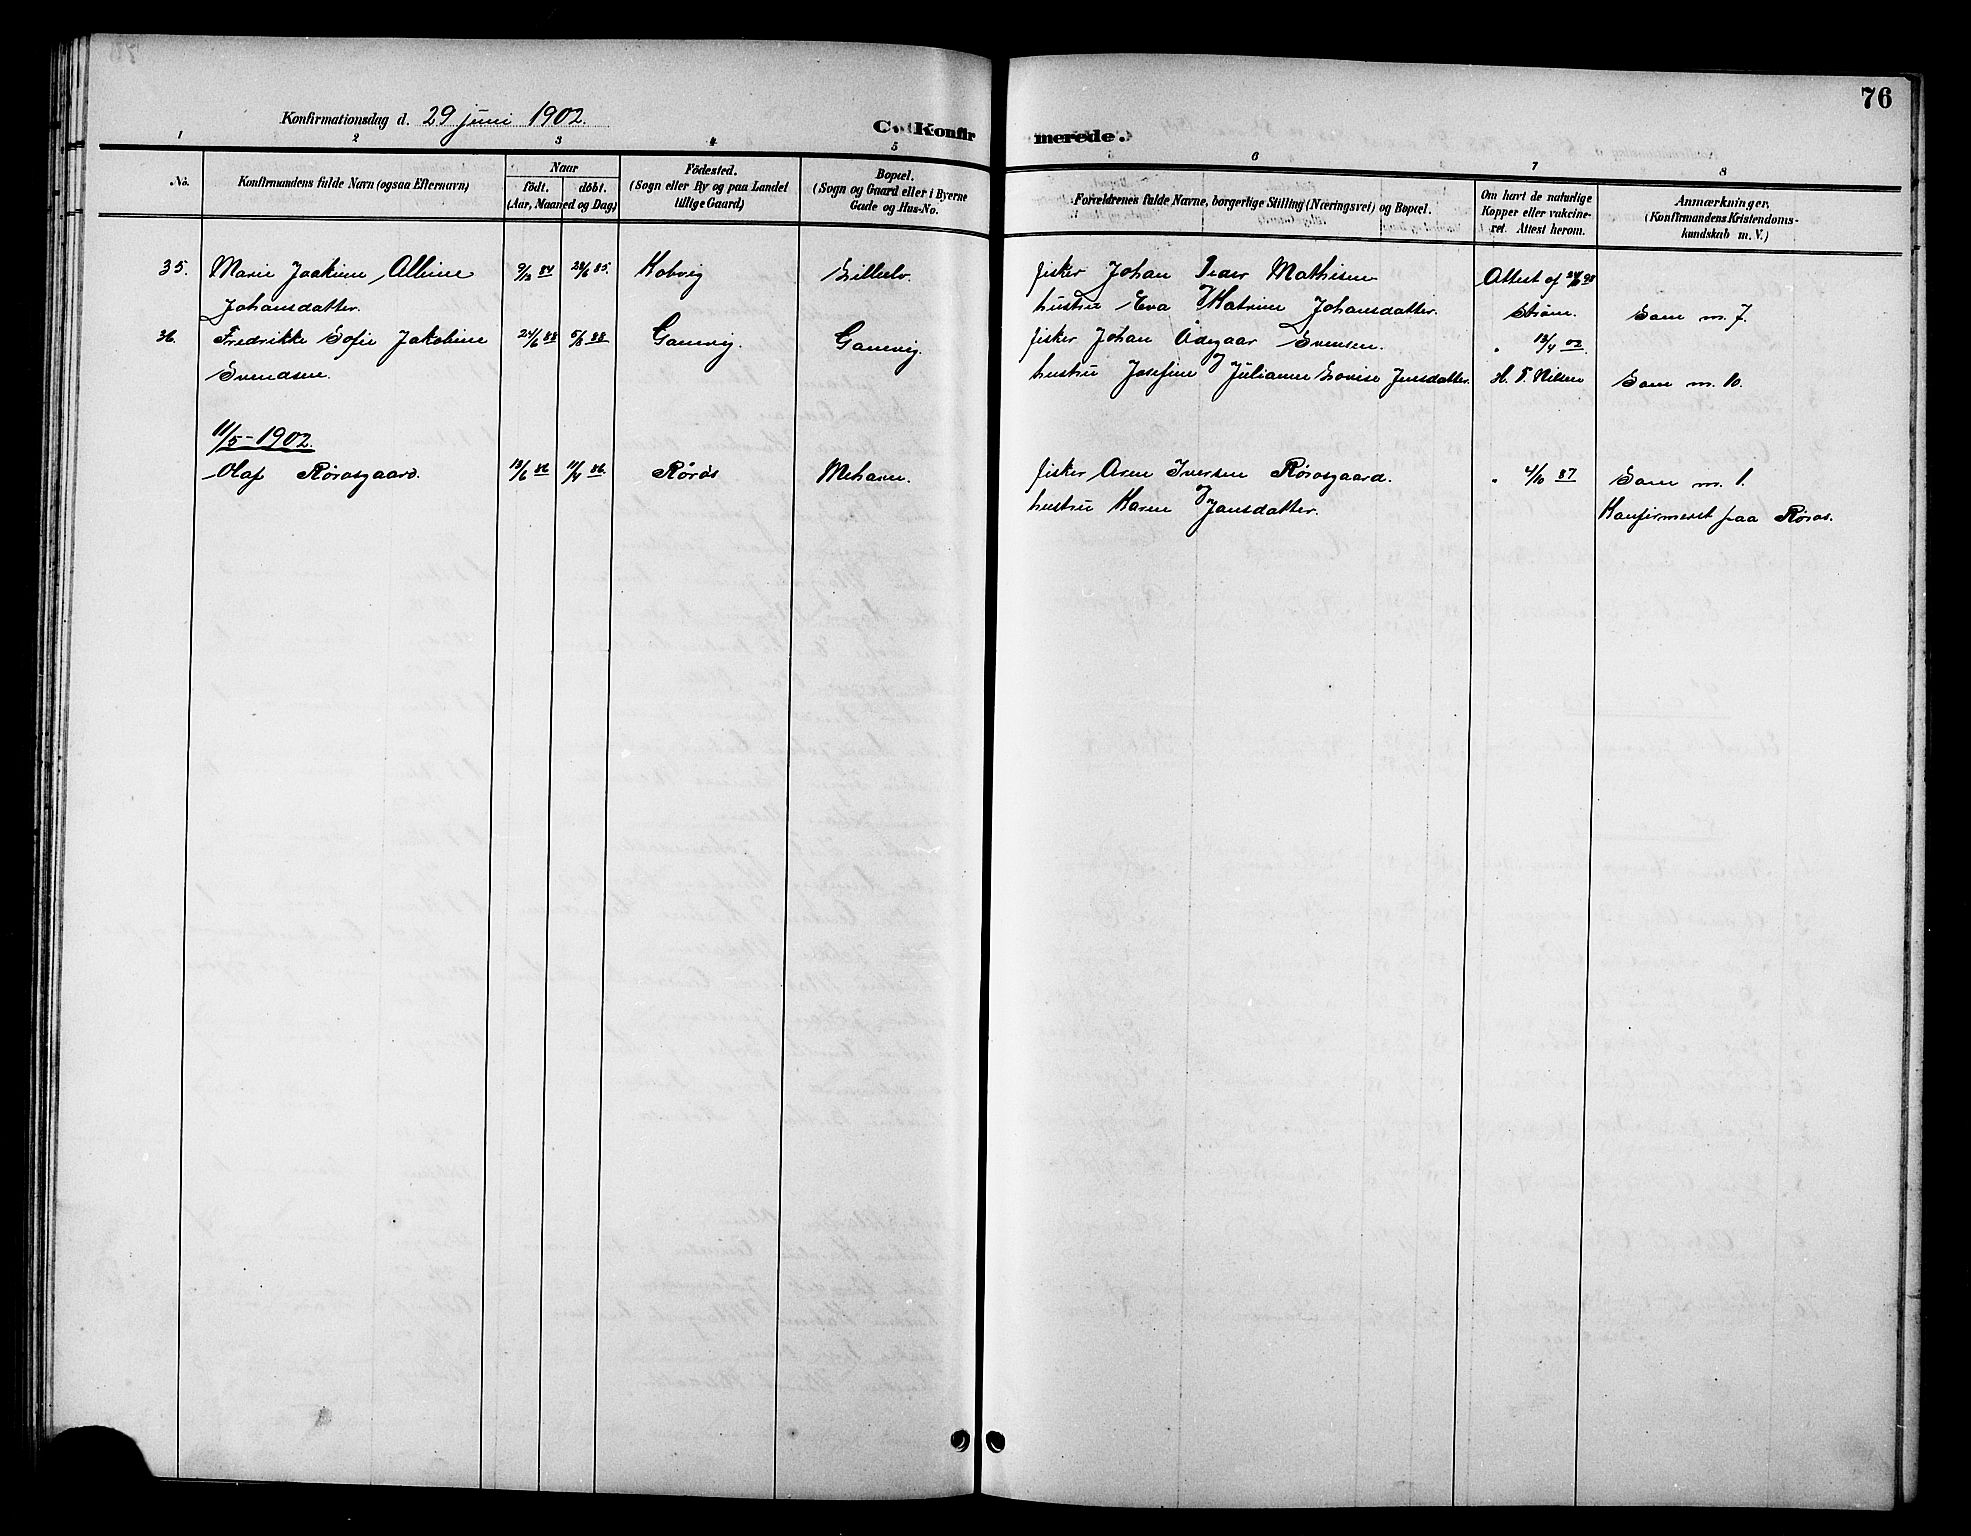 76
Konfirmationsdag d. 29 juni 1902.
C. Konfirmerede.
1 2 3 4 5 6 7 8
No.
Konfirmandens fulde Navn (ogsaa Efternavn)
Naar
födt. döbt.
(Aar, Maaned og Dag)
Födested.
(Sogn eller By og paa Landet
tillige Gaard)
Bopæl.
(Sogn og Gaard eller i Byerne
Gade og Hus-No.
Forældrenes fulde Navne, borgerlige Stilling (Næringsvei) og Bopæl.
Om havt de naturlige
Kopper eller vakcine-
ret. Attest herom.
Anmærkninger,
(Konfirmandens Kristendoms-
kundskab m. V.)
35. Marie Joakime Alline 9/3 84 28/6 85. Kobvig Lillelv. fisker Johan Peder Mathisen Attest af
Johansdatter. hustru Eva Katrine Johansdatter. Strøm. Sam m. 7.
36. Fredrikke Sofie Jakobine 24/6 88 5/8 88 Gamvig. Gamvig. fisker Johan Odegaar Svensen. " 13/4 02
Svendsen. hustru Josefine Julianne Lovise Jensdatter. H. T. Nilsen Sam m. 10.
11/5-1902.
Olaf Rørosgaard. 13/6 86 11/7 86. Rørøs Mehavn. fisker Arne Iversen Rørosgaard. " 4/10 87 Sam m. 1.
hustru Karen Jansdatter. Konfirmeret paa Røros.